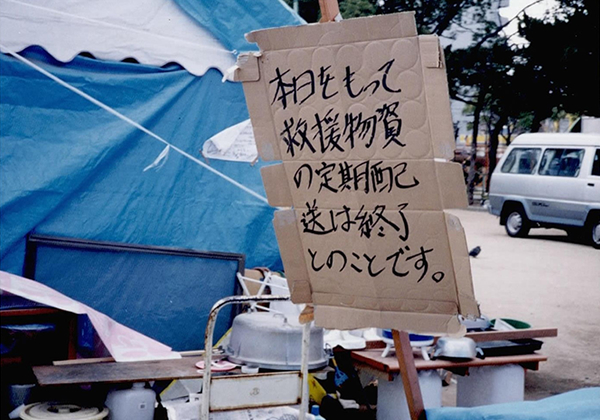 本日をもって
救援物資
の定期配
送は終了
とのことです。